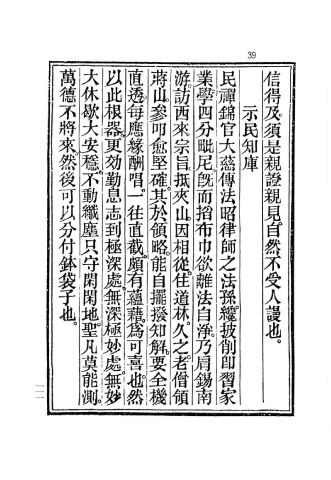 39
信得及須是親證親見自然不受人謾也
示民知庫
民禪錦官大慈傳法昭律師之法孫纔披削即習家
業學四分毗尼既而揞布巾欲離法自淨乃肩錫南
游訪西來宗旨抵夾山因相從住道林久之老僧領
蔣山參叩愈堅確其於領略能自擺撥知解要全機
直透每應緣酬唱一往直截頗有蘊藉為可喜也然
以此根器更効勤息志到極深處無深極妙處無妙
大休歇大安穩不動纖塵只守閑閑地聖凡莫能測
萬德不將來然後可以分付鉢袋子也